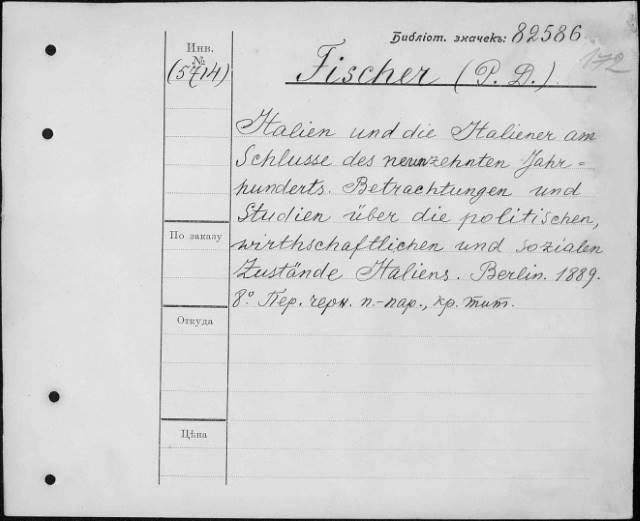 Библіот. значекъ: 82586
172
Инв.
№
(5714)
Fischer (P. D.)
Italien und die Italiener am
Schlusse des neunzehnten Jahr=
hunderts. Betrachtungen und
Studien über die politischen,
wirthschaftlichen und sozialen
Zustände Italiens. Berlin. 1889.
8º. Пер. черн. п.-пар., кр. тит.
По заказу
Откуда
Цѣна